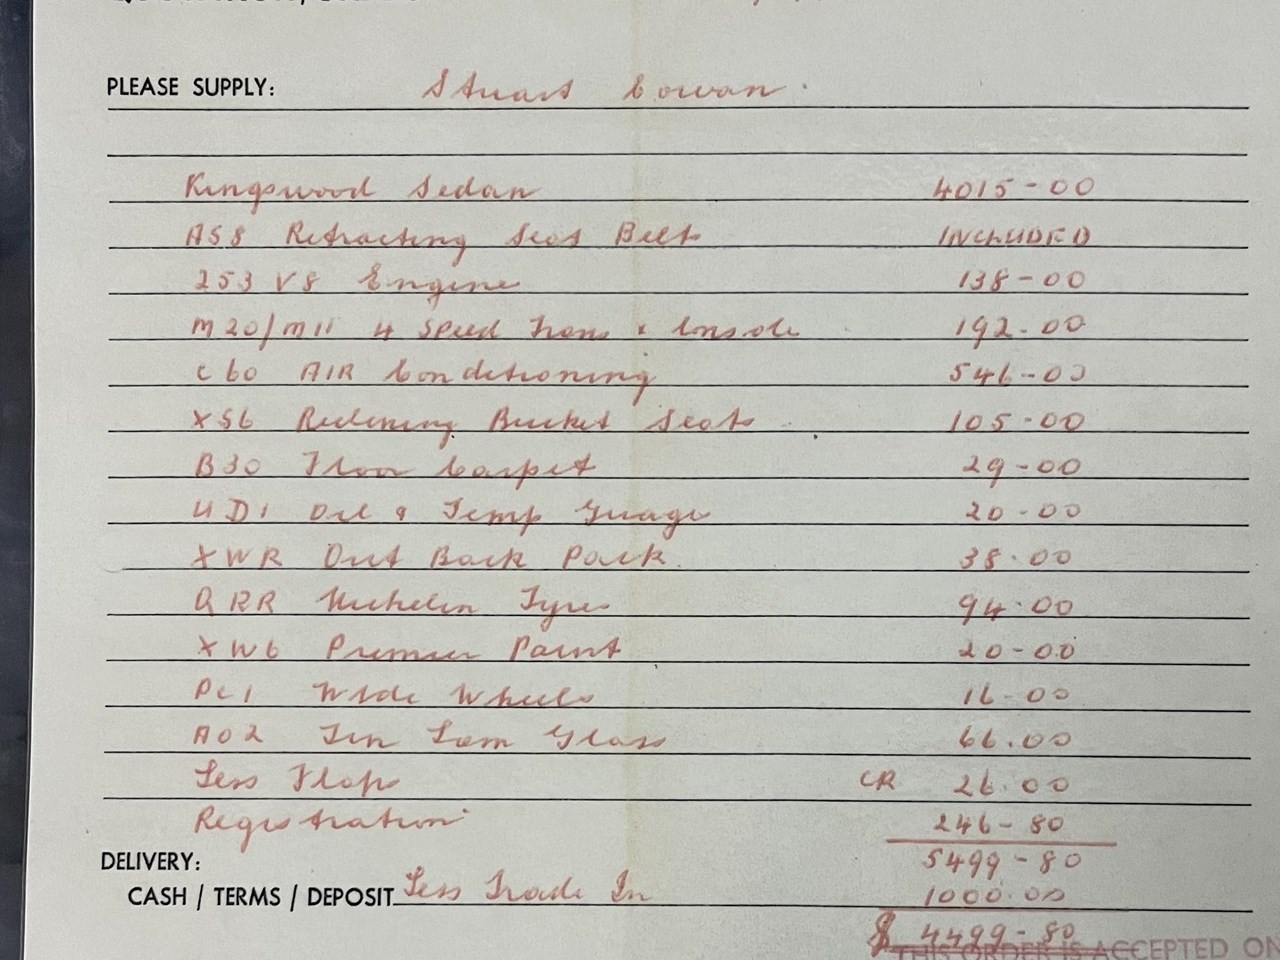 PLEASE SUPPLY: Stuart Cowan.
Kingswood Sedan 4015-00
AS8 Retracting Seat Belts INCLUDED
253 V8 Engine 138-00
M20/M11 4 Speed Trans & Console 192.00
C60 AIR Conditioning 546-00
XS6 Reclining Bucket Seats 105-00
B30 Floor Carpet 29-00
UD1 Oil & Temp Guage 20-00
XWR Out Back Pack. 38.00
QRR Michelin Tyres 94.00
XW6 Premier Paint 20-00
PC1 Wide Wheels 16-00
A02 Tin Lam Glass 66.00
Less Flaps CR 26.00
Registration 246-80
DELIVERY: 5499-80
CASH / TERMS / DEPOSIT Less Trade In 1000.00
$ 4499-80
THIS ORDER IS ACCEPTED ON